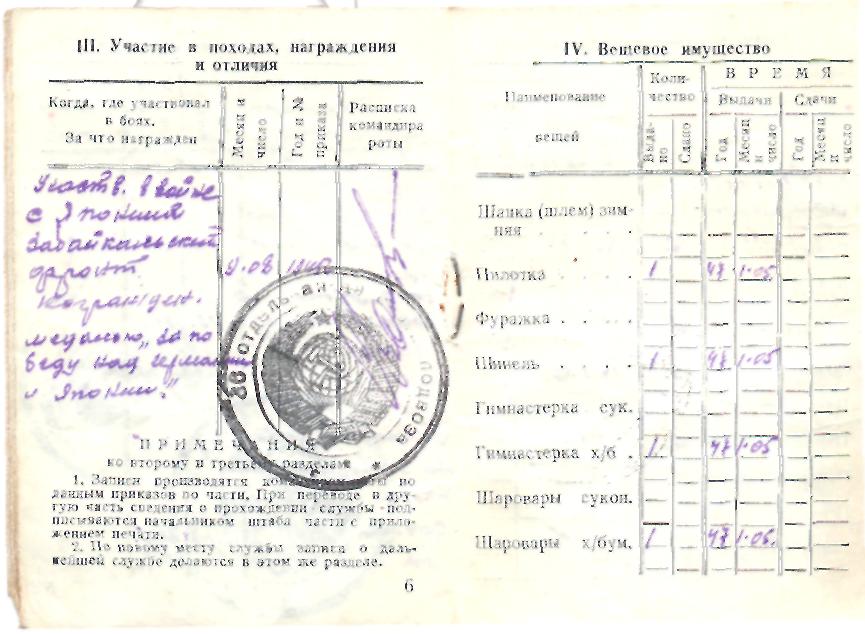 III. Участие в походах, награждения
и отличия
Когда, где участвовал
в боях.
За что награжден
Месяц и
число
Год и №
приказа
Расписка
командира
роты
Участв. в войне
с Японией
Забайкальский
фронт
награжден.
медалью "За по
беду над Германи
и Японии."
86 отдель
подвоза
ПРИМЕЧАНИЯ
ко второму и третьему разделам
1. Записи производятся командиром роты по
данным приказов по части. При переводе в дру-
гую часть сведения о прохождении службы под-
писываются начальником штаба части с прило-
жением печати.
2. По новому месту службы записи о даль-
нейшей службе делаются в этом же разделе.
6
IV. Вещевое имущество
Наименование
вещей
Коли-
чество
ВРЕМЯ
Выдачи
Сдачи
Выда-
но
Сдано
Год
Месяц
и
число
Год
Месяц
и
число
Шапка (шлем) зим-
няя . . . .
Пилотка . . . . 1 47 1.05
Фуражка . . . .
Шинель . . . . 1 47 1.05
Гимнастерка сук.
Гимнастерка х/б . 1 47 1.05
Шаровары сукон.
Шаровары х/бум. 1 47 1.05.